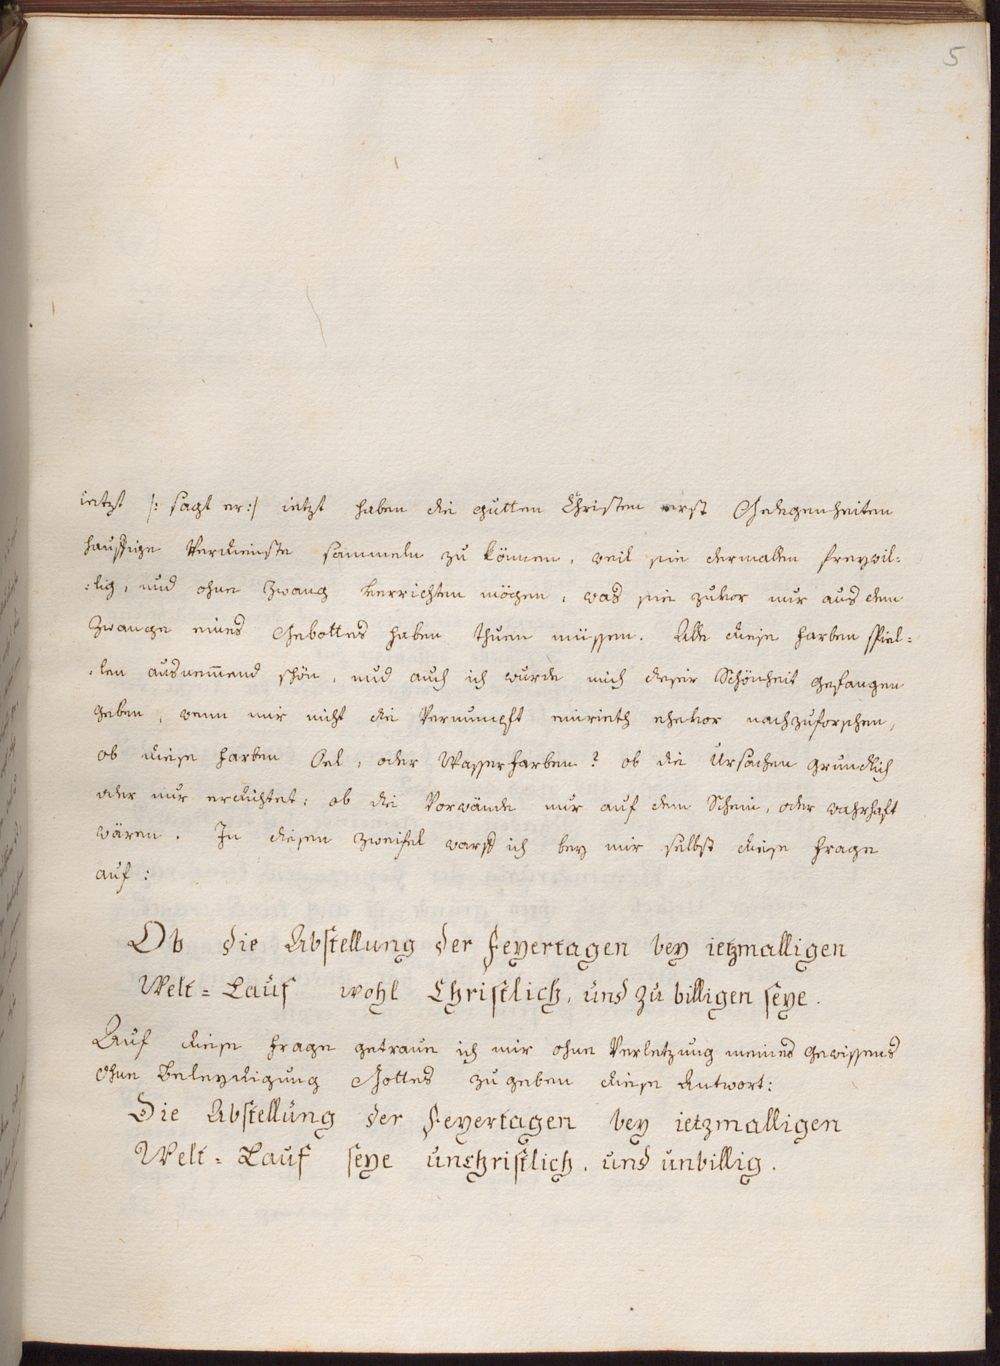 5
ietzt /: sagt er:/ ietzt haben die gutten Christen erst Gelegenheiten
häuffige Verdienste sammeln zu können, weil sie dermallen freywil=
=lig, und ohne Zwang verrichten mögen, was sie zuvor nur aus dem
Zwange eines Gebottes haben thuen müssen. Alle diese Farben spiel=
=len ausnem̄end schön, und auch ich wurde mich dieser Schönheit gefangen
geben, wenn mir nicht die Vernumpft einrieth ehevor nachzuforschen,
ob diese Farben Oel, oder Wasserfarben? ob die Ursachen grundlich
oder nur erdichtet: ob die Vorwände nur auf dem Schein, oder wahrhaft
wären. In diesen Zweifel warff ich bey mir selbst diese Frage
auf:
Ob die Abstellung der Feyertagen bey ietzmalligen
Welt=Lauf wohl Christlich, und zu billigen seye.
Auf diese Frage getraue ich mir ohne Verletzung meines Gewissens
ohne Beleydigung Gottes zugeben diese Antwort:
Die Abstellung der Feyertagen bey ietzmalligen
Welt=Lauf seye unchristlich, und unbillig.